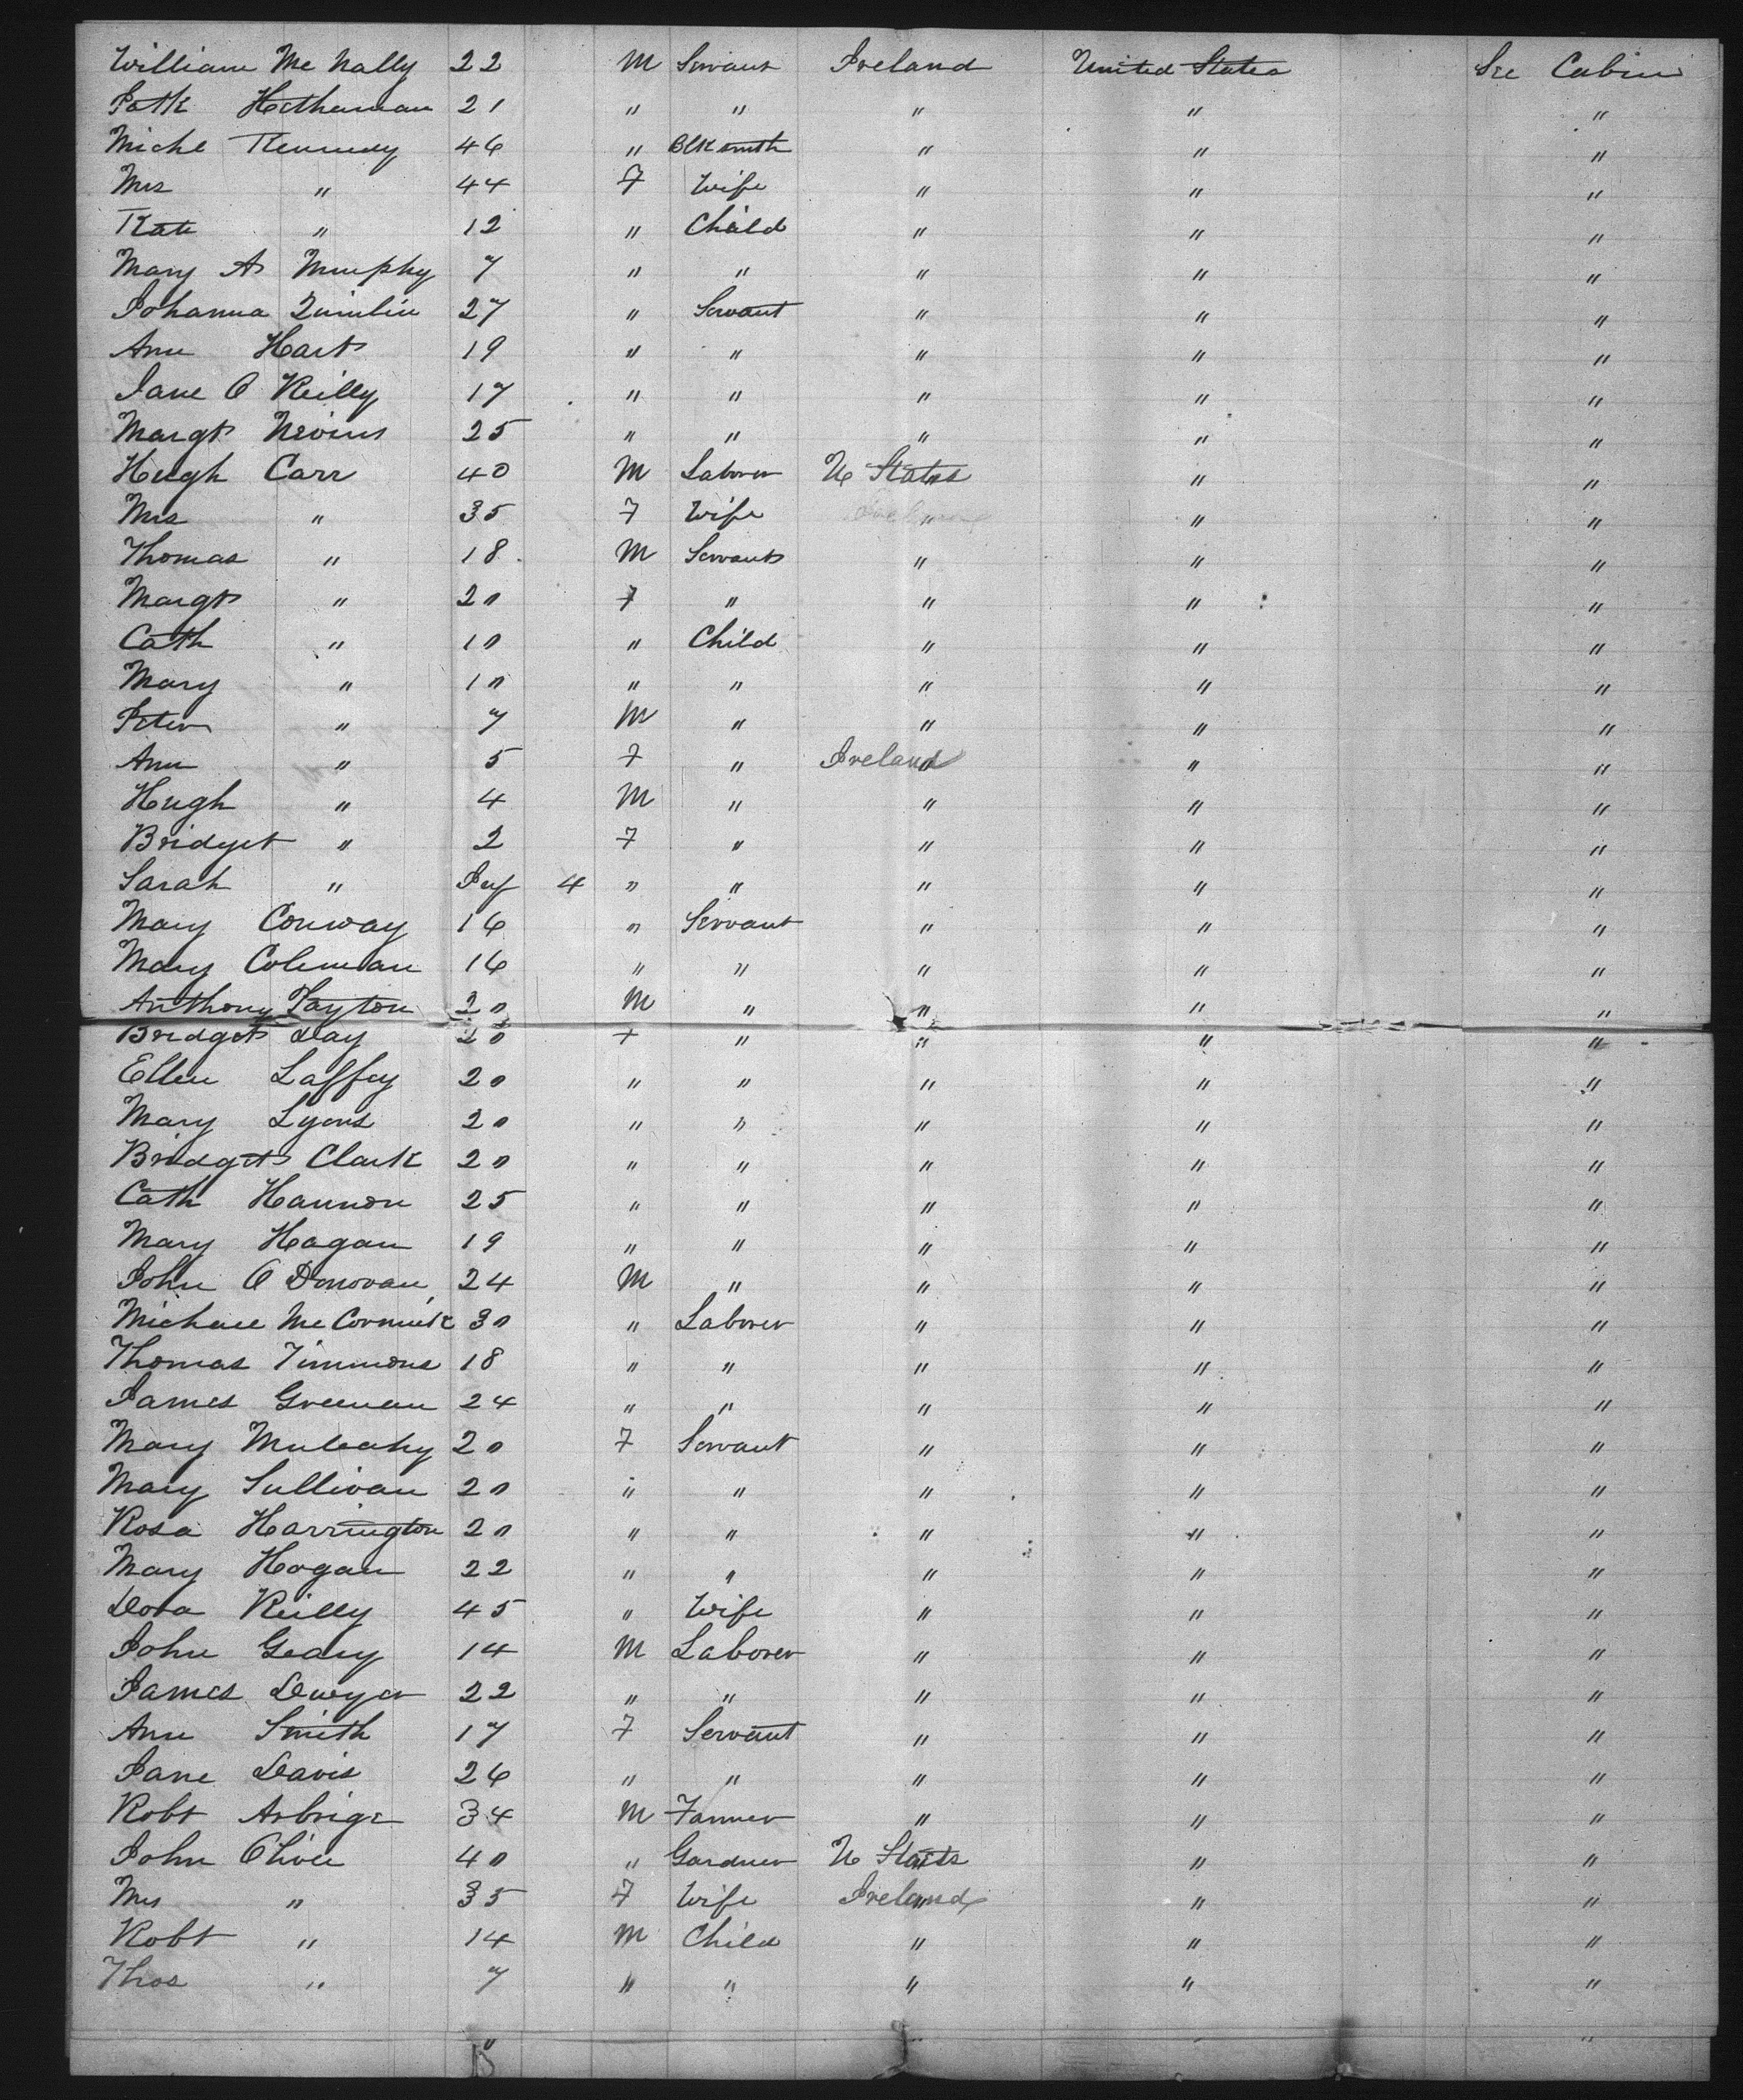 William Mc Nally 22 M Servant Ireland United States Sec Cabin
Patk Hethernan 21 " " " " "
Michl Kennedy 46 " Blksmith " " "
Mrs " 44 F Wife " " "
Kate " 12 " Child " " "
Mary A Murphy 7 " " " " "
Johanna Quinlin 27 " Servant " " "
Ann Hart 19 " " " " "
Jane O Reilly 17 " " " " "
Margt Nevins 25 " " " " "
Hugh Carr 40 M Laborer U States " "
Mrs " 35 F Wife " " "
Thomas " 18 M Servant " " "
Margt " 20 F " " " "
Cath " 10 " Child " " "
Mary " 10 " " " " "
Peter " 7 M " " " "
Ann " 5 F " Ireland " "
Hugh " 4 M " " " "
Bridget " 2 F " " " "
Sarah " Inf 4 " " " " "
Mary Conway 16 " Servant " " "
Mary Coleman 16 " " " " "
Anthony Tayton 20 M " " " "
Bridget Day 20 F " " " "
Ellen Laffey 20 " " " " "
Mary Lyons 20 " " " " "
Bridget Clark 20 " " " " "
Cath Hannon 25 " " " " "
Mary Hagan 19 " " " " "
John O Donovan 24 M " " " "
Michael Mc Cormick 30 " Laborer " " "
Thomas Timmons 18 " " " " "
James Greenan 24 " " " " "
Mary Mulcahy 20 F Servant " " "
Mary Sullivan 20 " " " " "
Rosa Harrington 20 " " " " "
Mary Hogan 22 " " " " "
Dora Reilly 45 " Wife " " "
John Geary 14 M Laborer " " "
James Dwyer 22 " " " " "
Ann Smith 17 F Servant " " "
Jane Davis 26 " " " " "
Robt Arbrige 34 M Farmer " " "
John Oliver 40 " Gardner U States " "
Mrs " 35 F Wife Ireland " "
Robt " 14 M Child " " "
Thos " 7 " " " " "